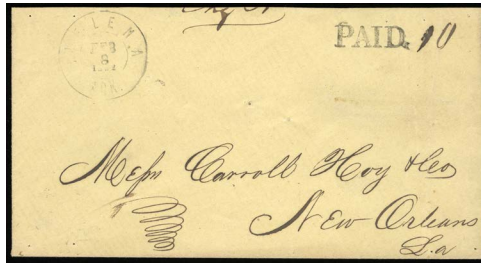 HELENA
FEB
8
ARK.
PAID. 10
Messrs Carroll Hoy & Co
New Orleans
La